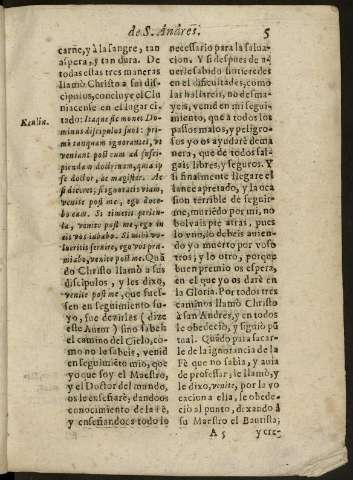 de S. Andres.
5
carne, y à la sangre, tan
aspera, y tan dura. De
todas estas tres maneras
llamò Christo a sus dis-
cipulos, concluye el Clu
niacense en el lugar ci-
tado: Itaque sic monet Do-
minus discipulos suos: pri-
mò tanquam ignorantes, vt
veniant post eum ad susci-
piendam doctrinam, quia ip
se doctor, ac magister. Ac
si diceret; si ignoratis viam,
venite post me, ego doce-
bo eam. Si timetis pericu-
la, venite post me, ego in
eis vos iubabo. Si mihi vo-
lueritis seruire, ego vos prę
miabo, venite post me. Quã
do Christo llamò a sus
discipulos, y les dixo,
venite post me, que fues-
sen en seguimiento su-
yo, fue dezirles (dize
este Autor) sino sabeis
el camino del Cielo, co-
mo no le sabeis, venid
en seguimiẽto mio, que
yo que soy el Maestro,
y el Doctor del mundo,
os le enseñarè, dandoos
conocimiento de la fè,
y enseñandoos todo lo
necessario para la salua-
cion. Y si despues de a-
uerle sabido sintieredes
en èl dificultades, como
las hallareis, no desma-
yeis, venid en mi segui-
miento, que à todos los
passos malos, y peligro-
sos yo os ayudarè de ma
nera, que de todos sal-
gais libres, y seguros. Y
si finalmente llegare el
lance apretado, y la oca
sion terrible de seguir-
me, muriẽdo por mi, no
bolvais pie atras, pues
lo vno, lo debeis auien-
do yo muerto por voso
tros; y lo otro, porque
buen premio os espera,
en el que yo os darè en
la Gloria. Por todos tres
caminos llamò Christo
à san Andres, y en todos
le obedeciò, y siguiò pũ
tual. Quãdo para sacar-
le de la ignorancia de la
Fè que no sabia, y auia
de professar; le llamò, y
le dixo, venite, por la vo
cacion a ella, se obede-
ciò al punto, dexando à
su Maestro el Bautista;
A 5
y cre-